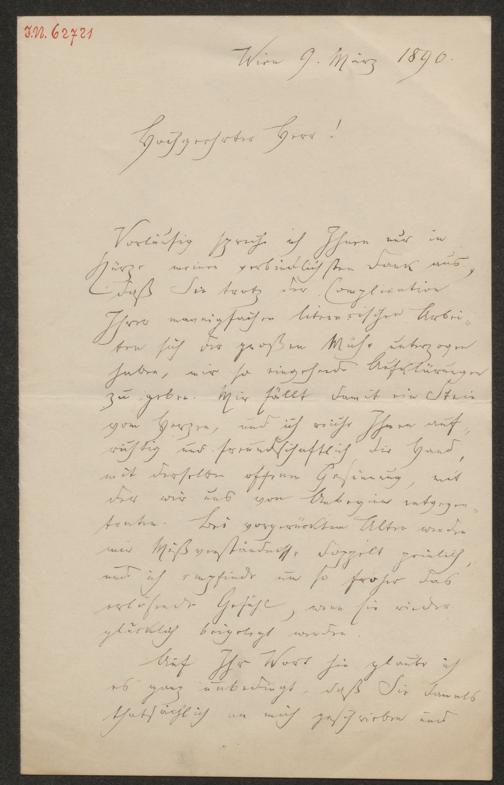 I.N. 62721
Wien 9. März 1890.
Hochgeehrter Herr!
Vorläufig spreche ich Ihnen nur in
Kürze meinen verbindlichsten Dank aus,
daß Sie trotz der Complication
Ihrer mannigfachen literarischen Arbei-
ten sich der großen Mühe unterzogen
haben, mir so eingehende Aufklärungen
zu geben. Mir fällt damit ein Stein
vom Herzen, und ich reiche Ihnen auf-
richtig und freundschaftlich die Hand,
mit derselben offenen Gesinnung, mit
der wir uns von Anbeginn entgegen-
traten. Bei vorgerücktem Alter werden
mir Mißverständnisse doppelt peinlich,
und ich empfinde um so froher das
erlösende Gefühl, wenn sie wieder
glücklich beigelegt werden.
Auf Ihr Wort hin glaube ich
es ganz unbedingt, daß Sie damals
thatsächlich an mich geschrieben und